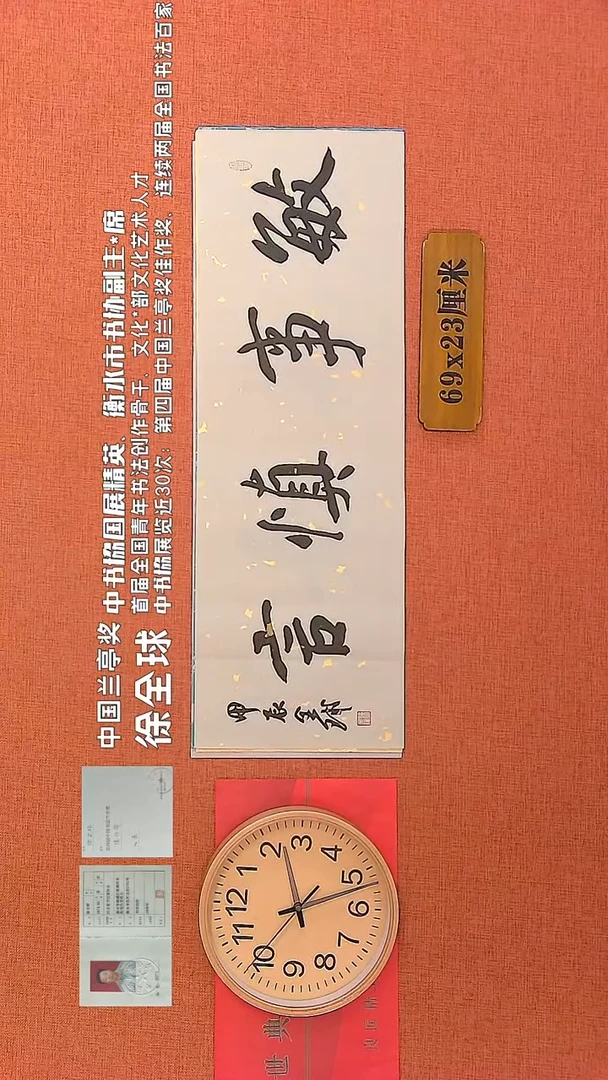 中国兰亭奖 中书协国展精英、衡水市书协副主*席
徐全球
首届全国青年书法创作骨干、文化*部文化艺术人才
中书协展览近30次；第四届中国兰亭奖佳作奖、连续两届全国书法百家
敏事慎言
甲辰全球
69x23厘米
12
1
2
3
4
5
6
7
8
9
10
11
世典